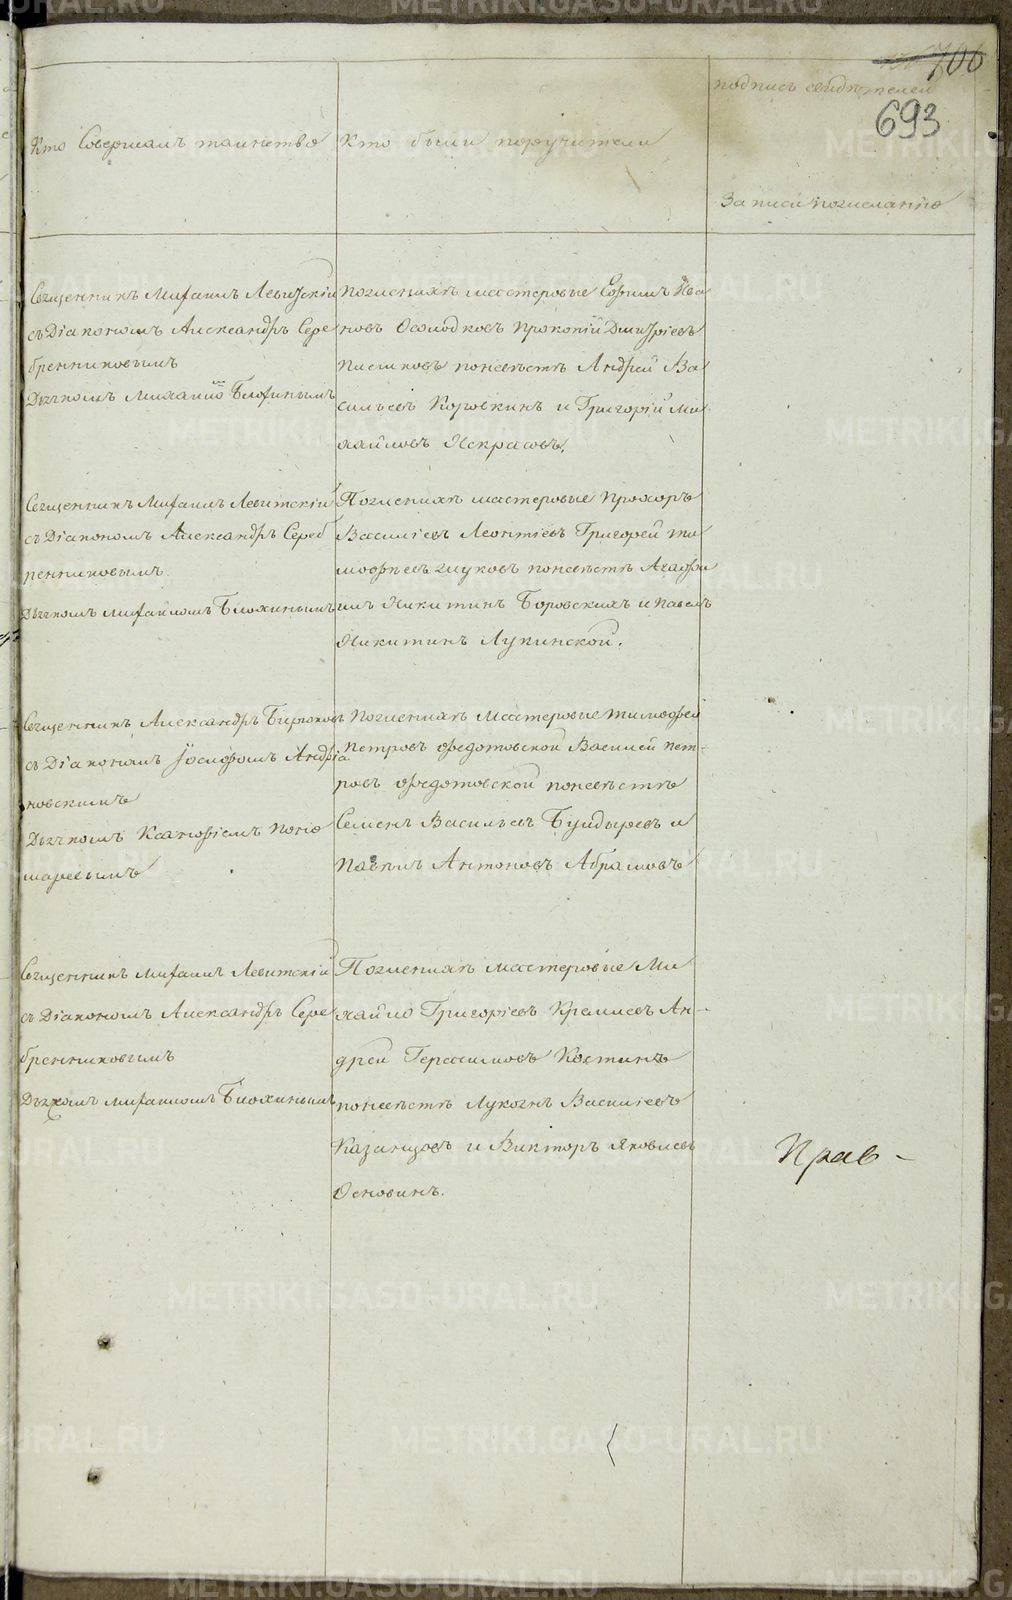 706
693
Кто Совершалъ таинство
Кто были поручители
подпись свидѣтелей
Записи пожеланію
Священникъ Михаилъ Левитскій
съ Діакономъ Александръ Сере
бренниковымъ
Дьячкомъ Михаиломъ Блохинымъ
По женихѣ мастеровые Ефимъ Ива
новъ Осолодковъ Прокопій Дмитріевъ
Пасиковъ по невѣстѣ Андрей Ва
сильевъ Коровкинъ и Григорій Ми
хайловъ Некрасовъ.
Священникъ Михаилъ Левитскій
съ Діакономъ Александръ Сереб
ренниковымъ
Дьячкомъ Михаиломъ Блохинымъ
По женихѣ мастеровые Прохоръ
Василіевъ Леонтіевъ Григорей Ти
мофѣевъ Жуковъ по невѣстѣ
Никитинъ Боровскихъ и Павелъ
Никитинъ Лупинской.
Священникъ Александръ Бирюковъ
съ Діакономъ Іосифомъ Андріа
новскимъ
Дьячкомъ Ксанофіемъ Поно
маревымъ
По женихѣ Мастеровые Тимофей
Петровъ Федотовской Василей Пет-
ровъ Федотовской по невѣстѣ
Семенъ Васильевъ Бундыревъ и
Павелъ Антоновъ Абрамовъ
Священникъ Михаилъ Левитскій
съ Діакономъ Александръ Сере
бренниковымъ
Дьячкомъ Михаиломъ Блохинымъ
По женихѣ мастеровые Ми
хайло Григоріевъ Кремлевъ Ан-
дрей Герасимовъ Костинъ
по невѣстѣ Василіевъ
Казанцовъ и Викторъ Яковлевъ
Основинъ.
Прав-
METRIKI.GASO-URAL.RU